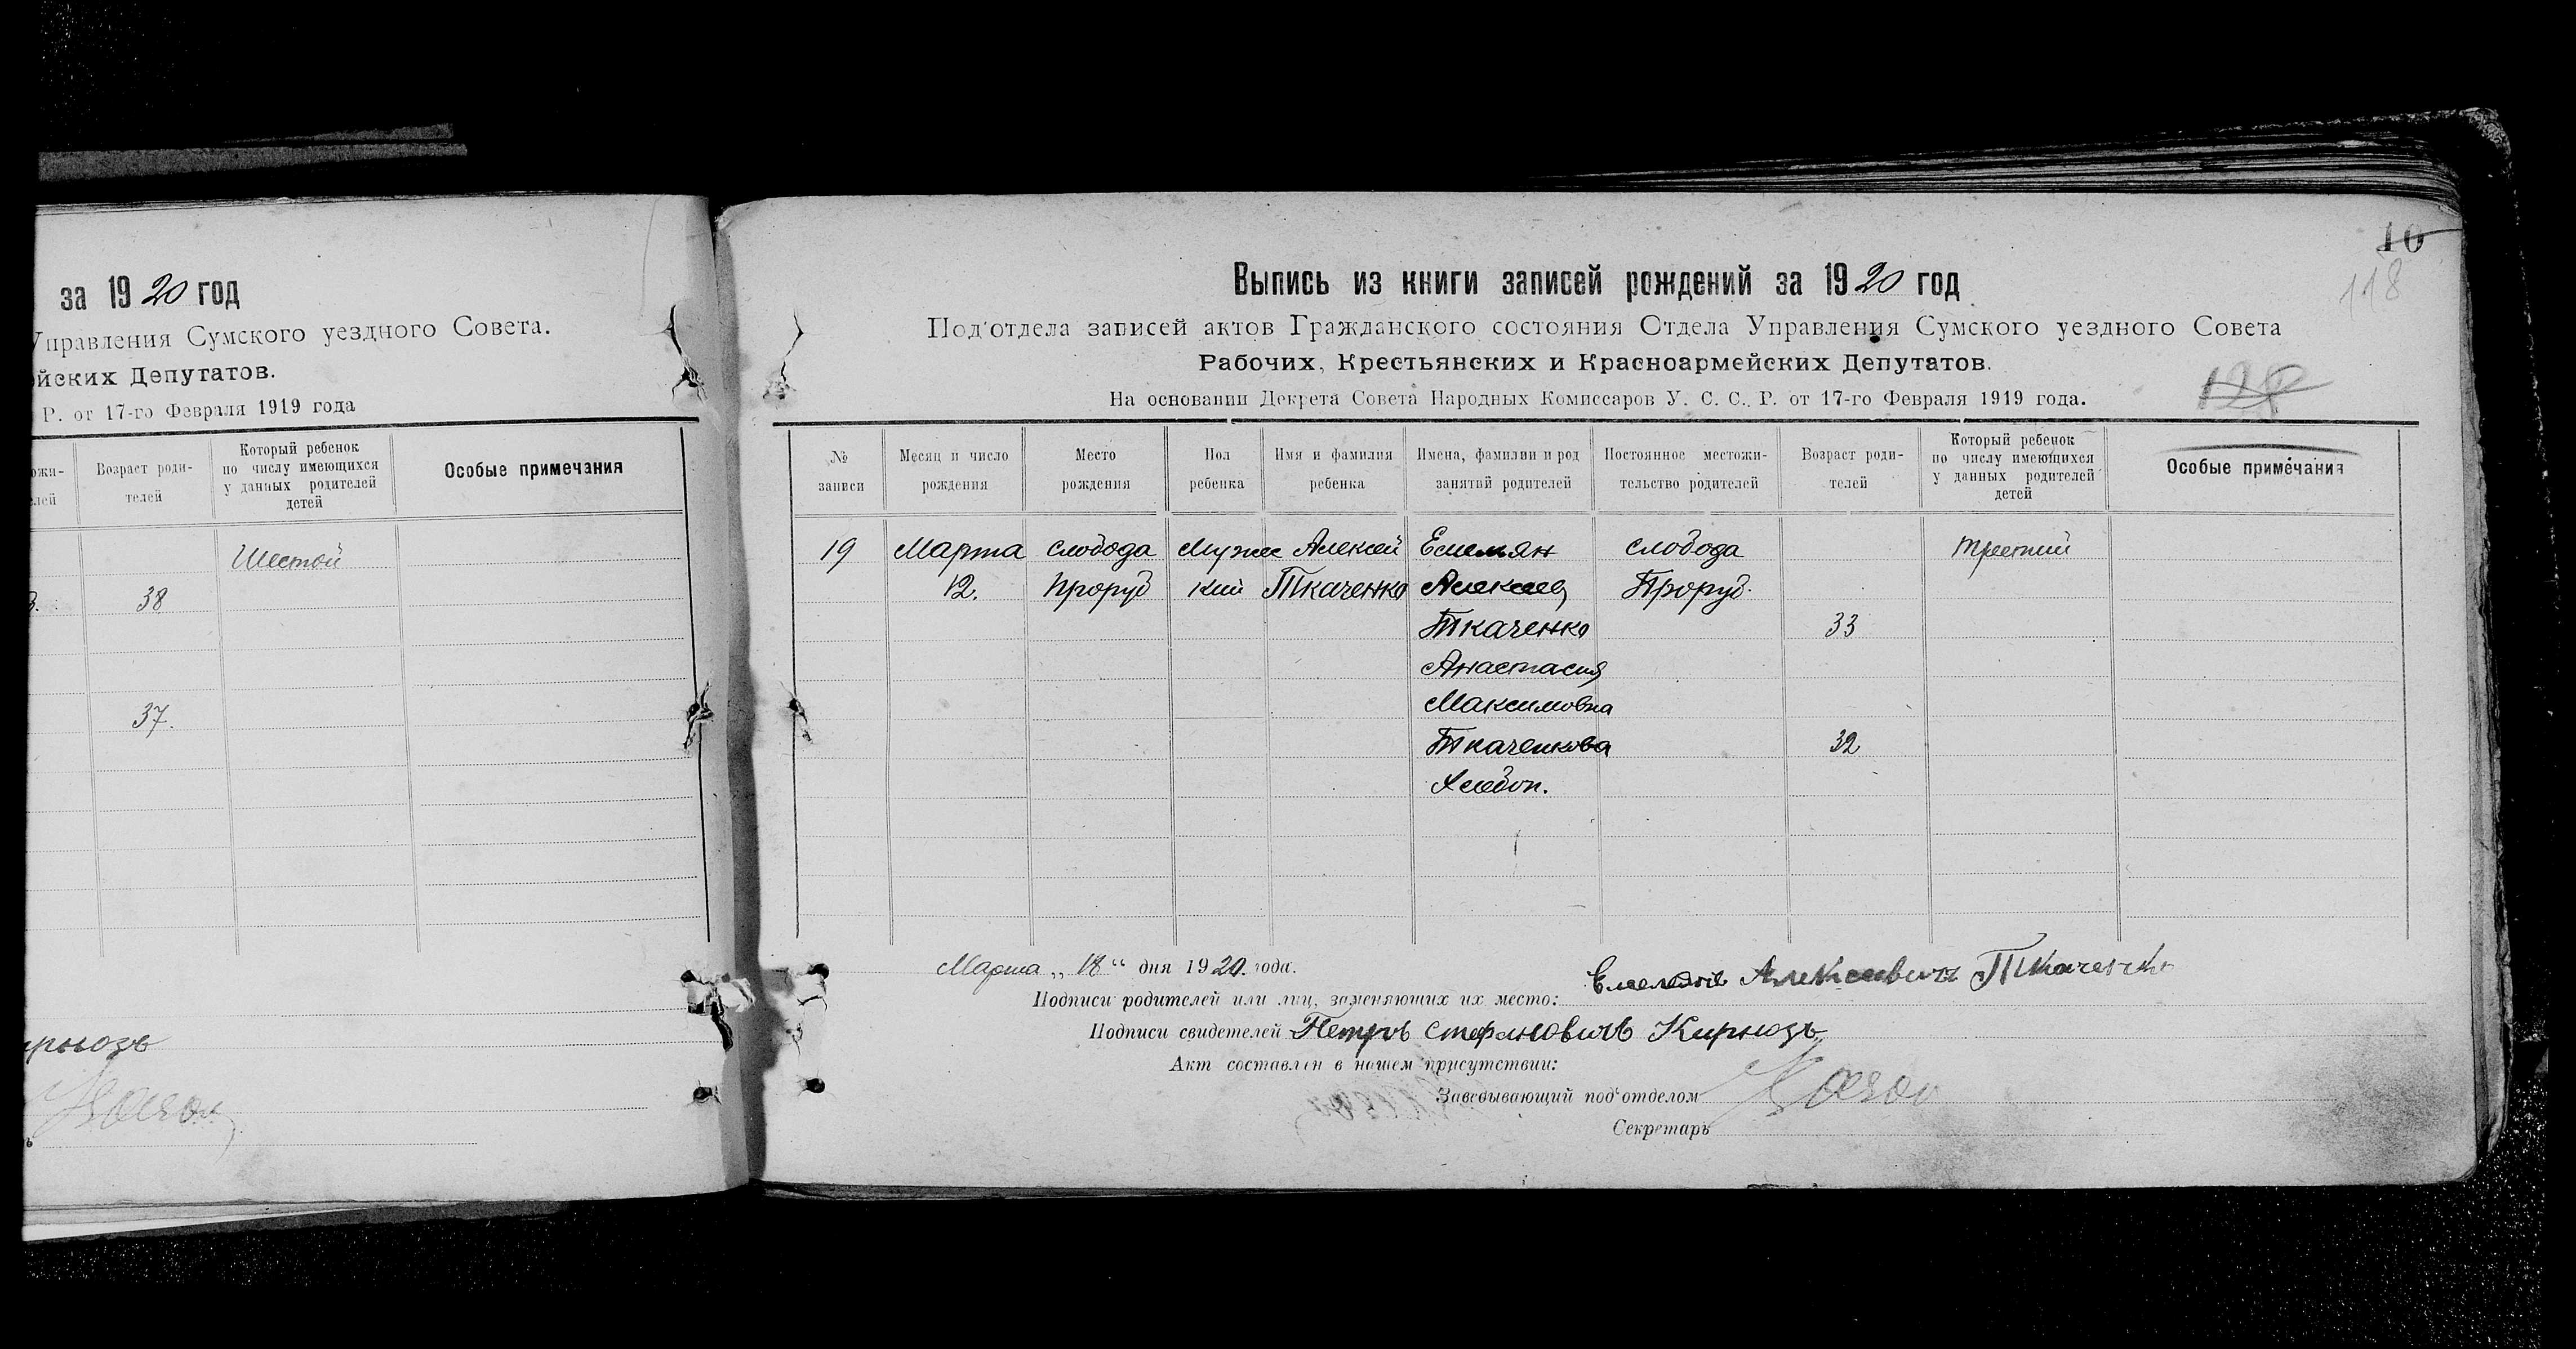 за 1920 год
Управления Сумского уездного Совета.
йских Депутатов.
Р. от 17-го Февраля 1919 года
ожи-
лей
Возраст роди-
телей
Который ребенок
по числу имеющихся
у данных родителей
детей
Особые примечания
Шестой
38
37.
ирнозъ
10
118
Выпись из книги записей рождений за 1920 год
Под'отдела записей актов Гражданского состояния Отдела Управления Сумского уездного Совета
Рабочих, Крестьянских и Красноармейских Депутатов.
На основании Декрета Совета Народных Комиссаров У. С. С. Р. от 17-го Февраля 1919 года.
№
записи
Месяц и число
рождения
Место
рождения
Пол
ребенка
Имя и фамилия
ребенка
Имена, фамилии и род
занятий родителей
Постоянное местожи-
тельство родителей
Возраст роди-
телей
Который ребенок
по числу имеющихся
у данных родителей
детей
Особые примечания
19 Марта слобода Мужес Алексей Емельян слобода Третий
12. Проруб кий Ткаченко Алексеев Проруб.
Ткаченко 33
Анастасия
Максимовна
Ткаченкова 32
Хлебоп.
Марта „18“ дня 1920 года.
Подписи родителей или лиц, заменяющих их место: Емелянъ Алексеевичъ Ткаченко
Подписи свидетелей Петръ Стефановичъ Кирнозъ
Акт составлен в нашем присутствии:
Заведывающий под'отделом
Секретарь